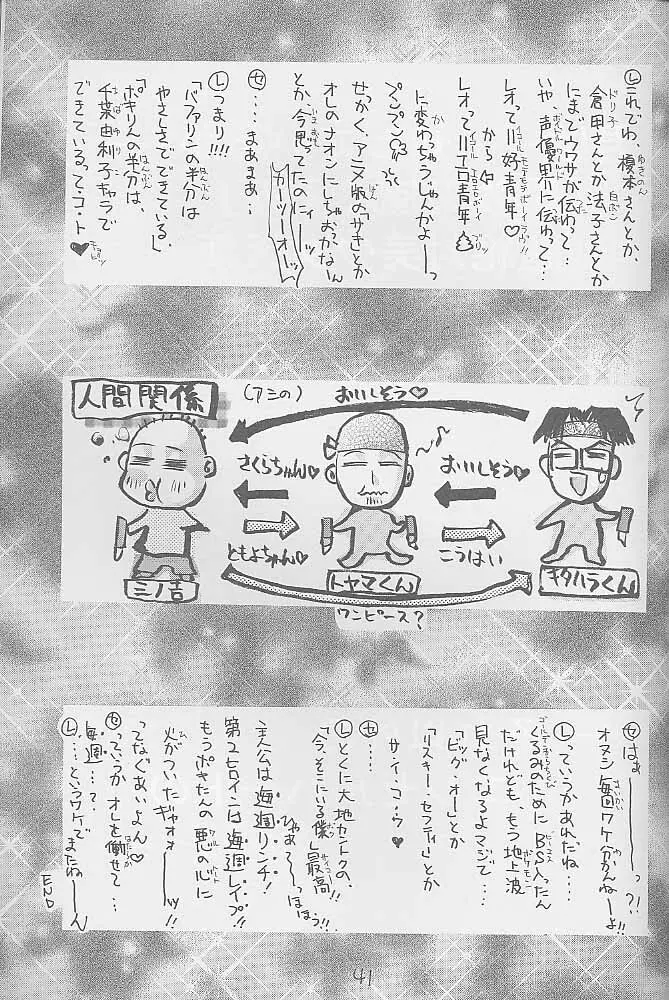 Ⓛこれでわ、榎本さんとか、
ゆきのん
倉田さんとか法子さんとか
ドリ子
にまでウワサが伝わって…
いや、声優界に伝わって…
レオって=好青年♡
イコール
から
レオって=エロ青年
イコール
に変わっちゃうじゃんかよーっ
プンプン
せっかく、アニメ版の「さき」とか
オレのナオンにしちゃおっかなん
とか今思ってたのにィーッ
カーツーオーッ
㋝…まあまあ…
Ⓛつまり!!!
「バファリンの半分は
はんぶん
やさしさでできている」
「ポキりんの半分は、
はんぶん
千葉由利子キャラで
ちばゆりこ
できている」ってコ・ト
♥
人間関係
(アシの)
おいしそう♡
さくらちゃん♡
おいしそう♡
ともよちゃん♡
こうはい
ミノ吉
トヤマくん
キタハラくん
ワンピース?
㋝はぁーーっ?!
オヌシ毎回ワケ分かんねーよ!!
まいかい
Ⓛっていうかあれだね…
くるみのためにBS入ったん
だけれども、もう地上波
見なくなるよマジで…
「ビッグ・オー」とか
「リスキー・セフティ」とか
サ・イ・コ・ウ♥
㋝……
Ⓛとくに大地セントクの、
「今、そこにいる僕」最高!!
サイコー
ひゃあて〜っほほう!!
主人公は毎週リンチ!
第2ヒロインは毎週レイプ!!
もうポキたんの悪の心に
ワル
火がついたギャオォーーッ!!
ってなぐあいよん♡
㋝っていうかオレを働せて…
毎週…?
Ⓛ…というワケでまたねーーん
END
41